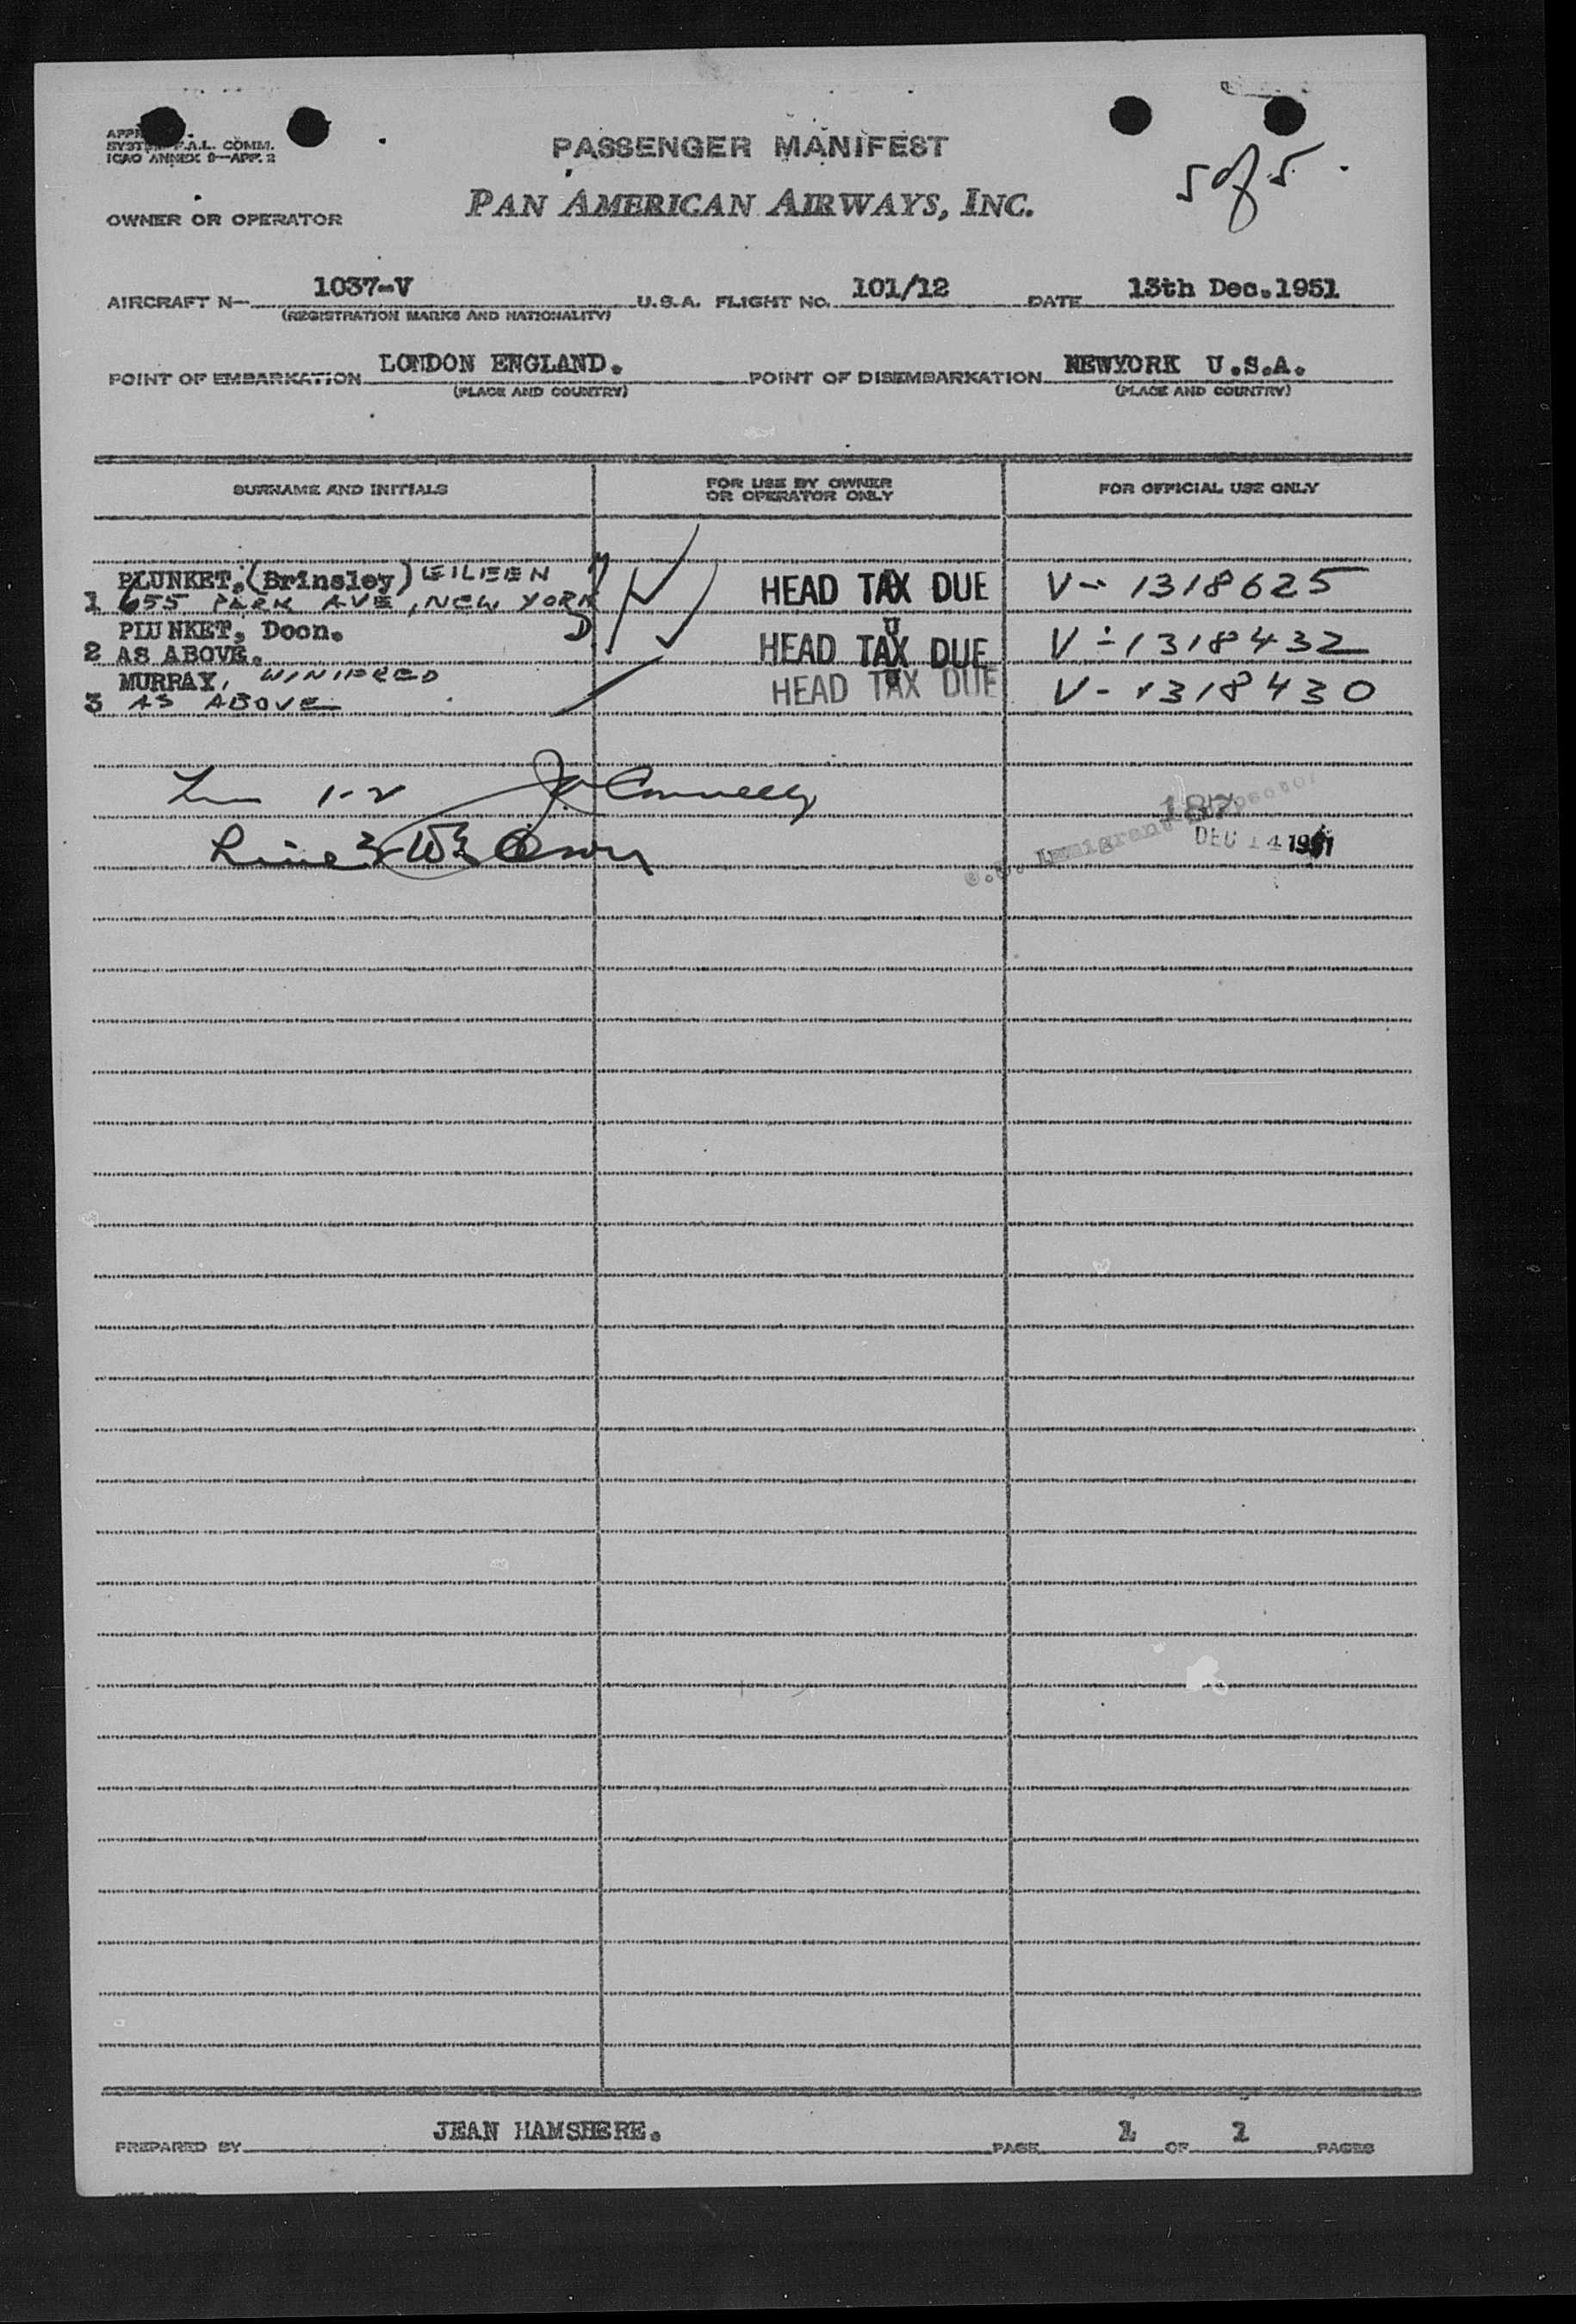 5 of 5.
SYSTEM F.A.L. COMM.
ICAO ANNEX 9—APP. 2
PASSENGER MANIFEST
OWNER OR OPERATOR PAN AMERICAN AIRWAYS, INC.
AIRCRAFT N— 1037-V U.S.A. FLIGHT NO. 101/12 DATE 13th Dec.1951
(REGISTRATION MARKS AND NATIONALITY)
POINT OF EMBARKATION LONDON ENGLAND. POINT OF DISEMBARKATION NEWYORK U.S.A.
(PLACE AND COUNTRY) (PLACE AND COUNTRY)
SURNAME AND INITIALS FOR USE BY OWNER OR OPERATOR ONLY FOR OFFICIAL USE ONLY
PLUNKET, (Brinsley) EILEEN HEAD TAX DUE V-1318625
1 655 PARK AVE, NEW YORK
PLUNKET, Doon. HEAD TAX DUE V-1318432
2 AS ABOVE.
MURRAY, WINIFRED HEAD TAX DUE V-1318430
3 AS ABOVE
1-2 Connelly
187
Immigrant Inspector
Line 3
DEC 14 1951
PREPARED BY JEAN HAMSHERE. PAGE 1 OF 1 PAGES